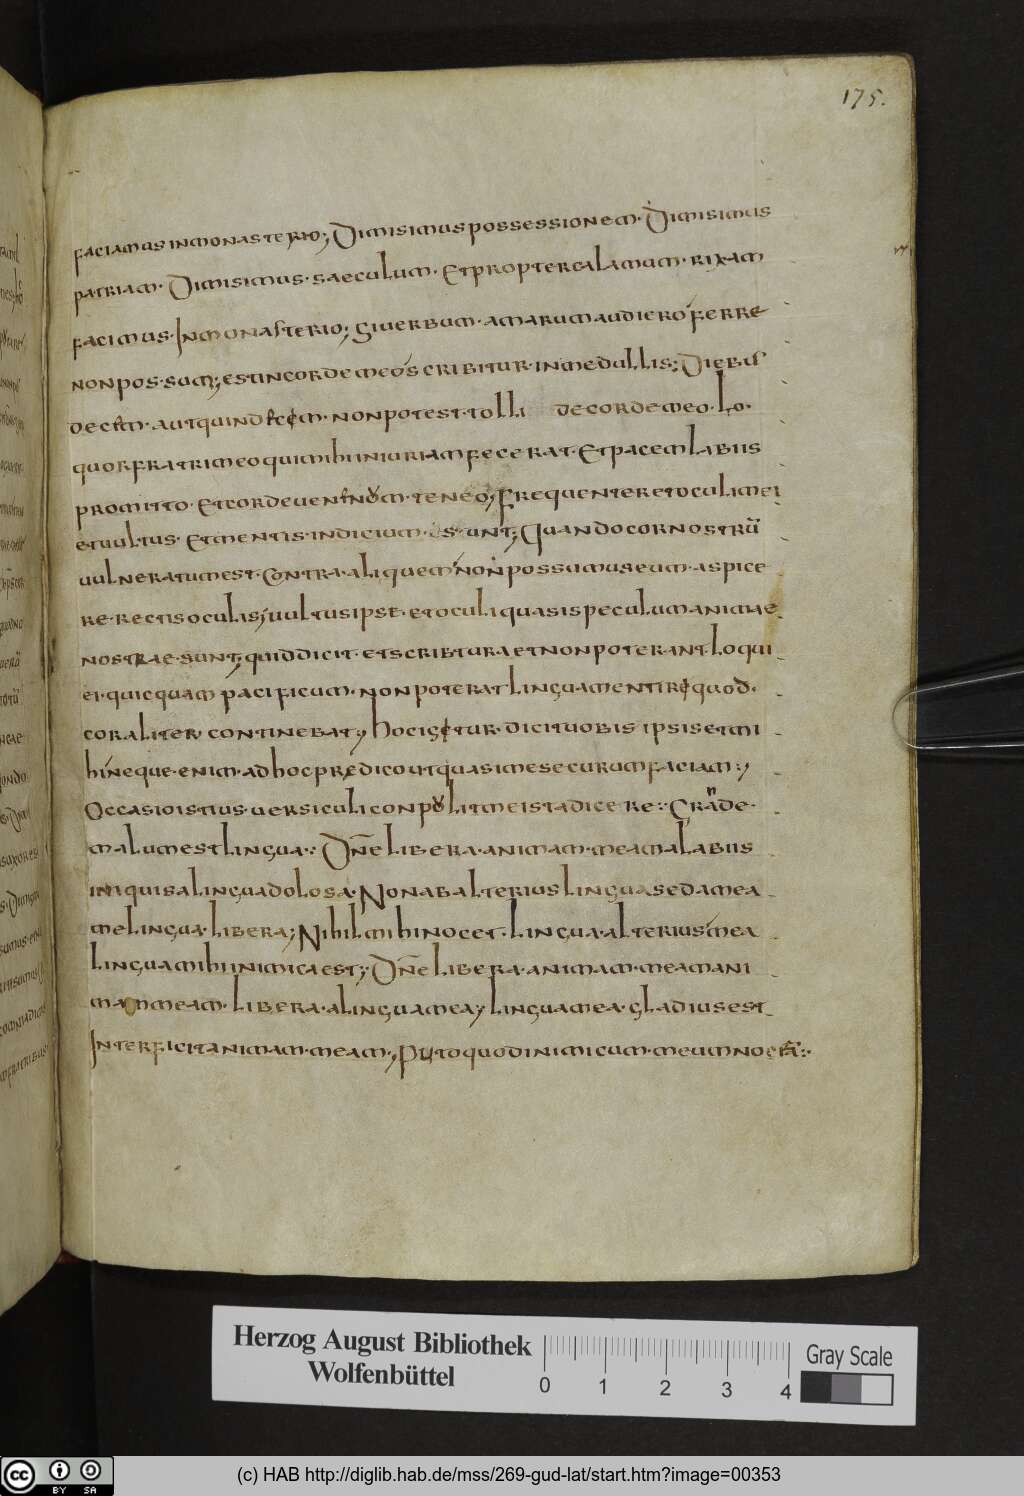 175.
faciamus inmonasterio; Dimisimus possessionem· Dimisimus
patriam· Dimisimus· saeculum· Et propter calamum· rixam
facimus· In monasterio; Si uerbum· amarum audiero ferre
non pos·sum; est in corde meo scribitur· in medullis; Diebus
decem· aut quindecem· non potest· tolli de corde meo· Lo·
quor fratri meo qui mihi iniuriam fecerat· Et pacem labiis
promitto· et corde teneo; Frequenter et oculi mei
et uultus· Et mentis· indicium· sunt; Quando cor nostrū
uulneratum est· Contra· aliquem non possumus eum· aspice
re· rectis oculis; uultus ipse· et oculi quasi speculum animae
nostrae· sunt; quid dicit· et scribtura et non poterant· loqui
ei· quicquam pacificum· non poterat lingua mentire quod·
cor aliter continebat; hoc igetur· dicit uobis ipsis et mi
hineque· enim· ad hoc predico ut quasi me securum faciam;
Occasio istius· uersiculi conpulit me ista dicere:· Grande·
malum est lingua:· Dn̄e libera· animam· meam a labiis
iniquis a lingua dolosa· Non ab alterius lingua sed a mea
me lingua· libera; Nihil mihi nocet· lingua· alterius mea
lingua mihi inimica est; Dn̄e libera· animam· meam ani
mam meam· libera· a lingua mea; lingua mea· gladius est
Interficit animam· meam·; Puto quod inimicum· meum
Herzog August Bibliothek
Wolfenbüttel
0 1 2 3 4
Gray Scale
cc BY SA
(c) HAB http://diglib.hab.de/mss/269-gud-lat/start.htm?image=00353